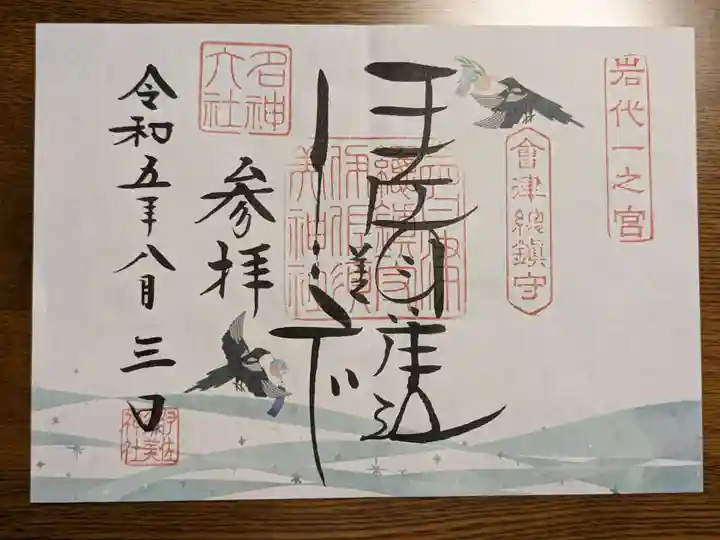 岩代一之宮
會津總鎮守
會津
總鎮守
伊佐須
美神社
名神
大社
参拝
令和五年八月三日
伊佐
須美
神社